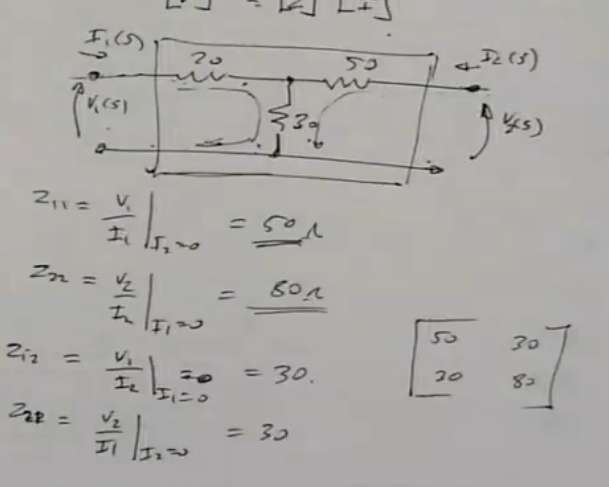 [V] = [Z] [I]
I₁(s) 20 50 I₂(s)
V₁(s) 30 V₂(s)
Z₁₁ = V₁/I₁ |I₂=0 = 50Ω
Z₂₂ = V₂/I₂ |I₁=0 = 80Ω
Z₁₂ = V₁/I₂ |I₁=0 = 30.
Z₂₂ = V₂/I₁ |I₂=0 = 30
50 30
30 80